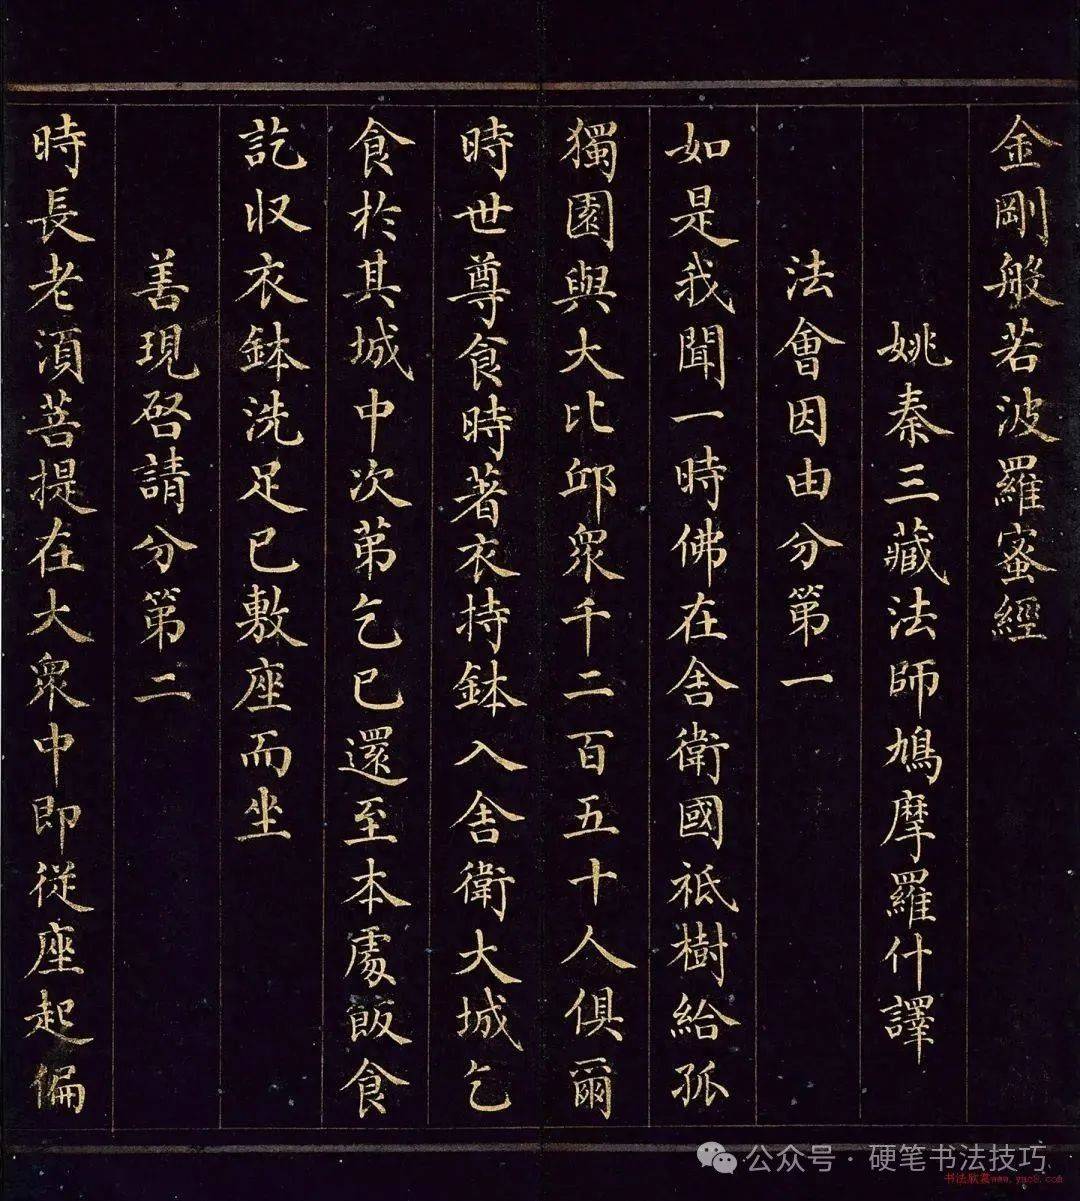 金剛般若波羅蜜經
姚秦三藏法師鳩摩羅什譯
法會因由分第一
如是我聞一時佛在舍衛國祇樹給孤
獨園與大比邱衆千二百五十人俱爾
時世尊食時著衣持鉢入舍衛大城乞
食於其城中次第乞已還至本處飯食
訖収衣鉢洗足已敷座而坐
善現啓請分第二
時長老湏菩提在大衆中即從座起偏
公众号·硬笔书法技巧
书法欣赏www.yac8.com